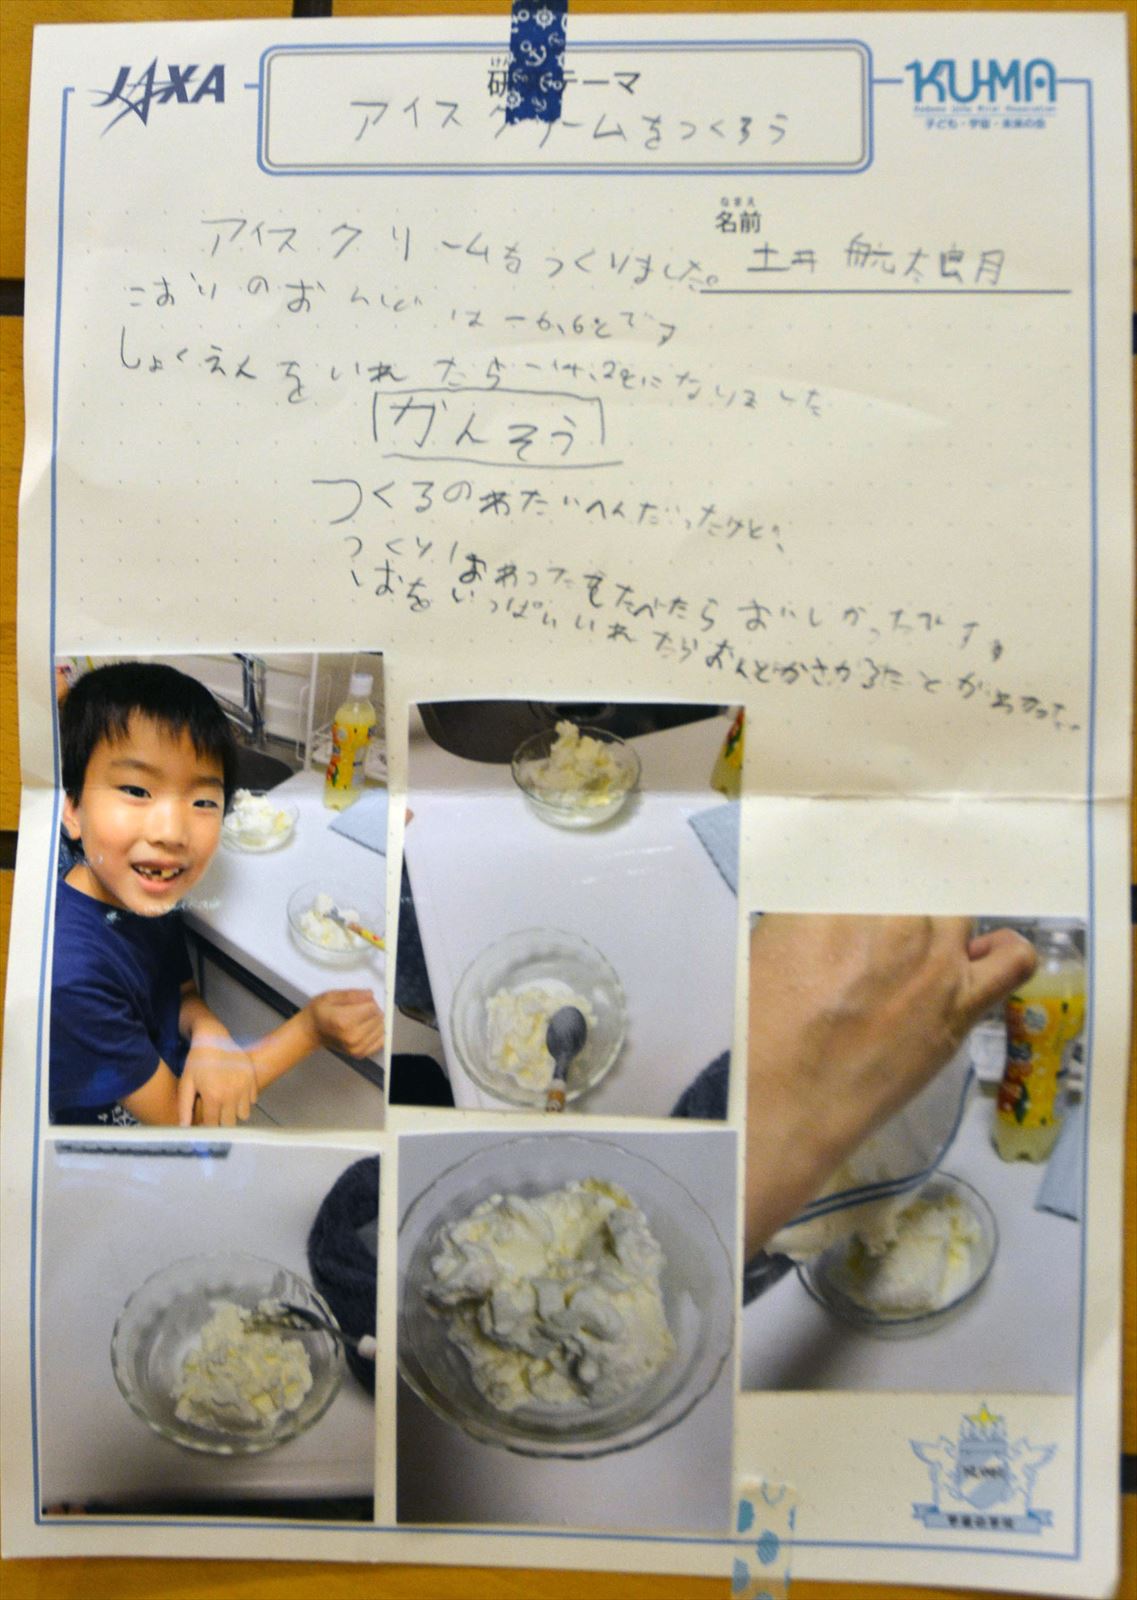 JAXA
研 テーマ
KU-MA
子ども・宇宙・未来の会
アイスクリームをつくろう
なまえ
名前
土井 航太朗
アイスクリームをつくりました。
こおりのおんどは-6.6℃です
しょくえんをいれたら-14.2℃になりました
かんそう
つくるのわたいへんだったけど、
つくりおわったをたべたらおいしかったです。
しおをいっぱいいれたらおんどがさがることがわかった。